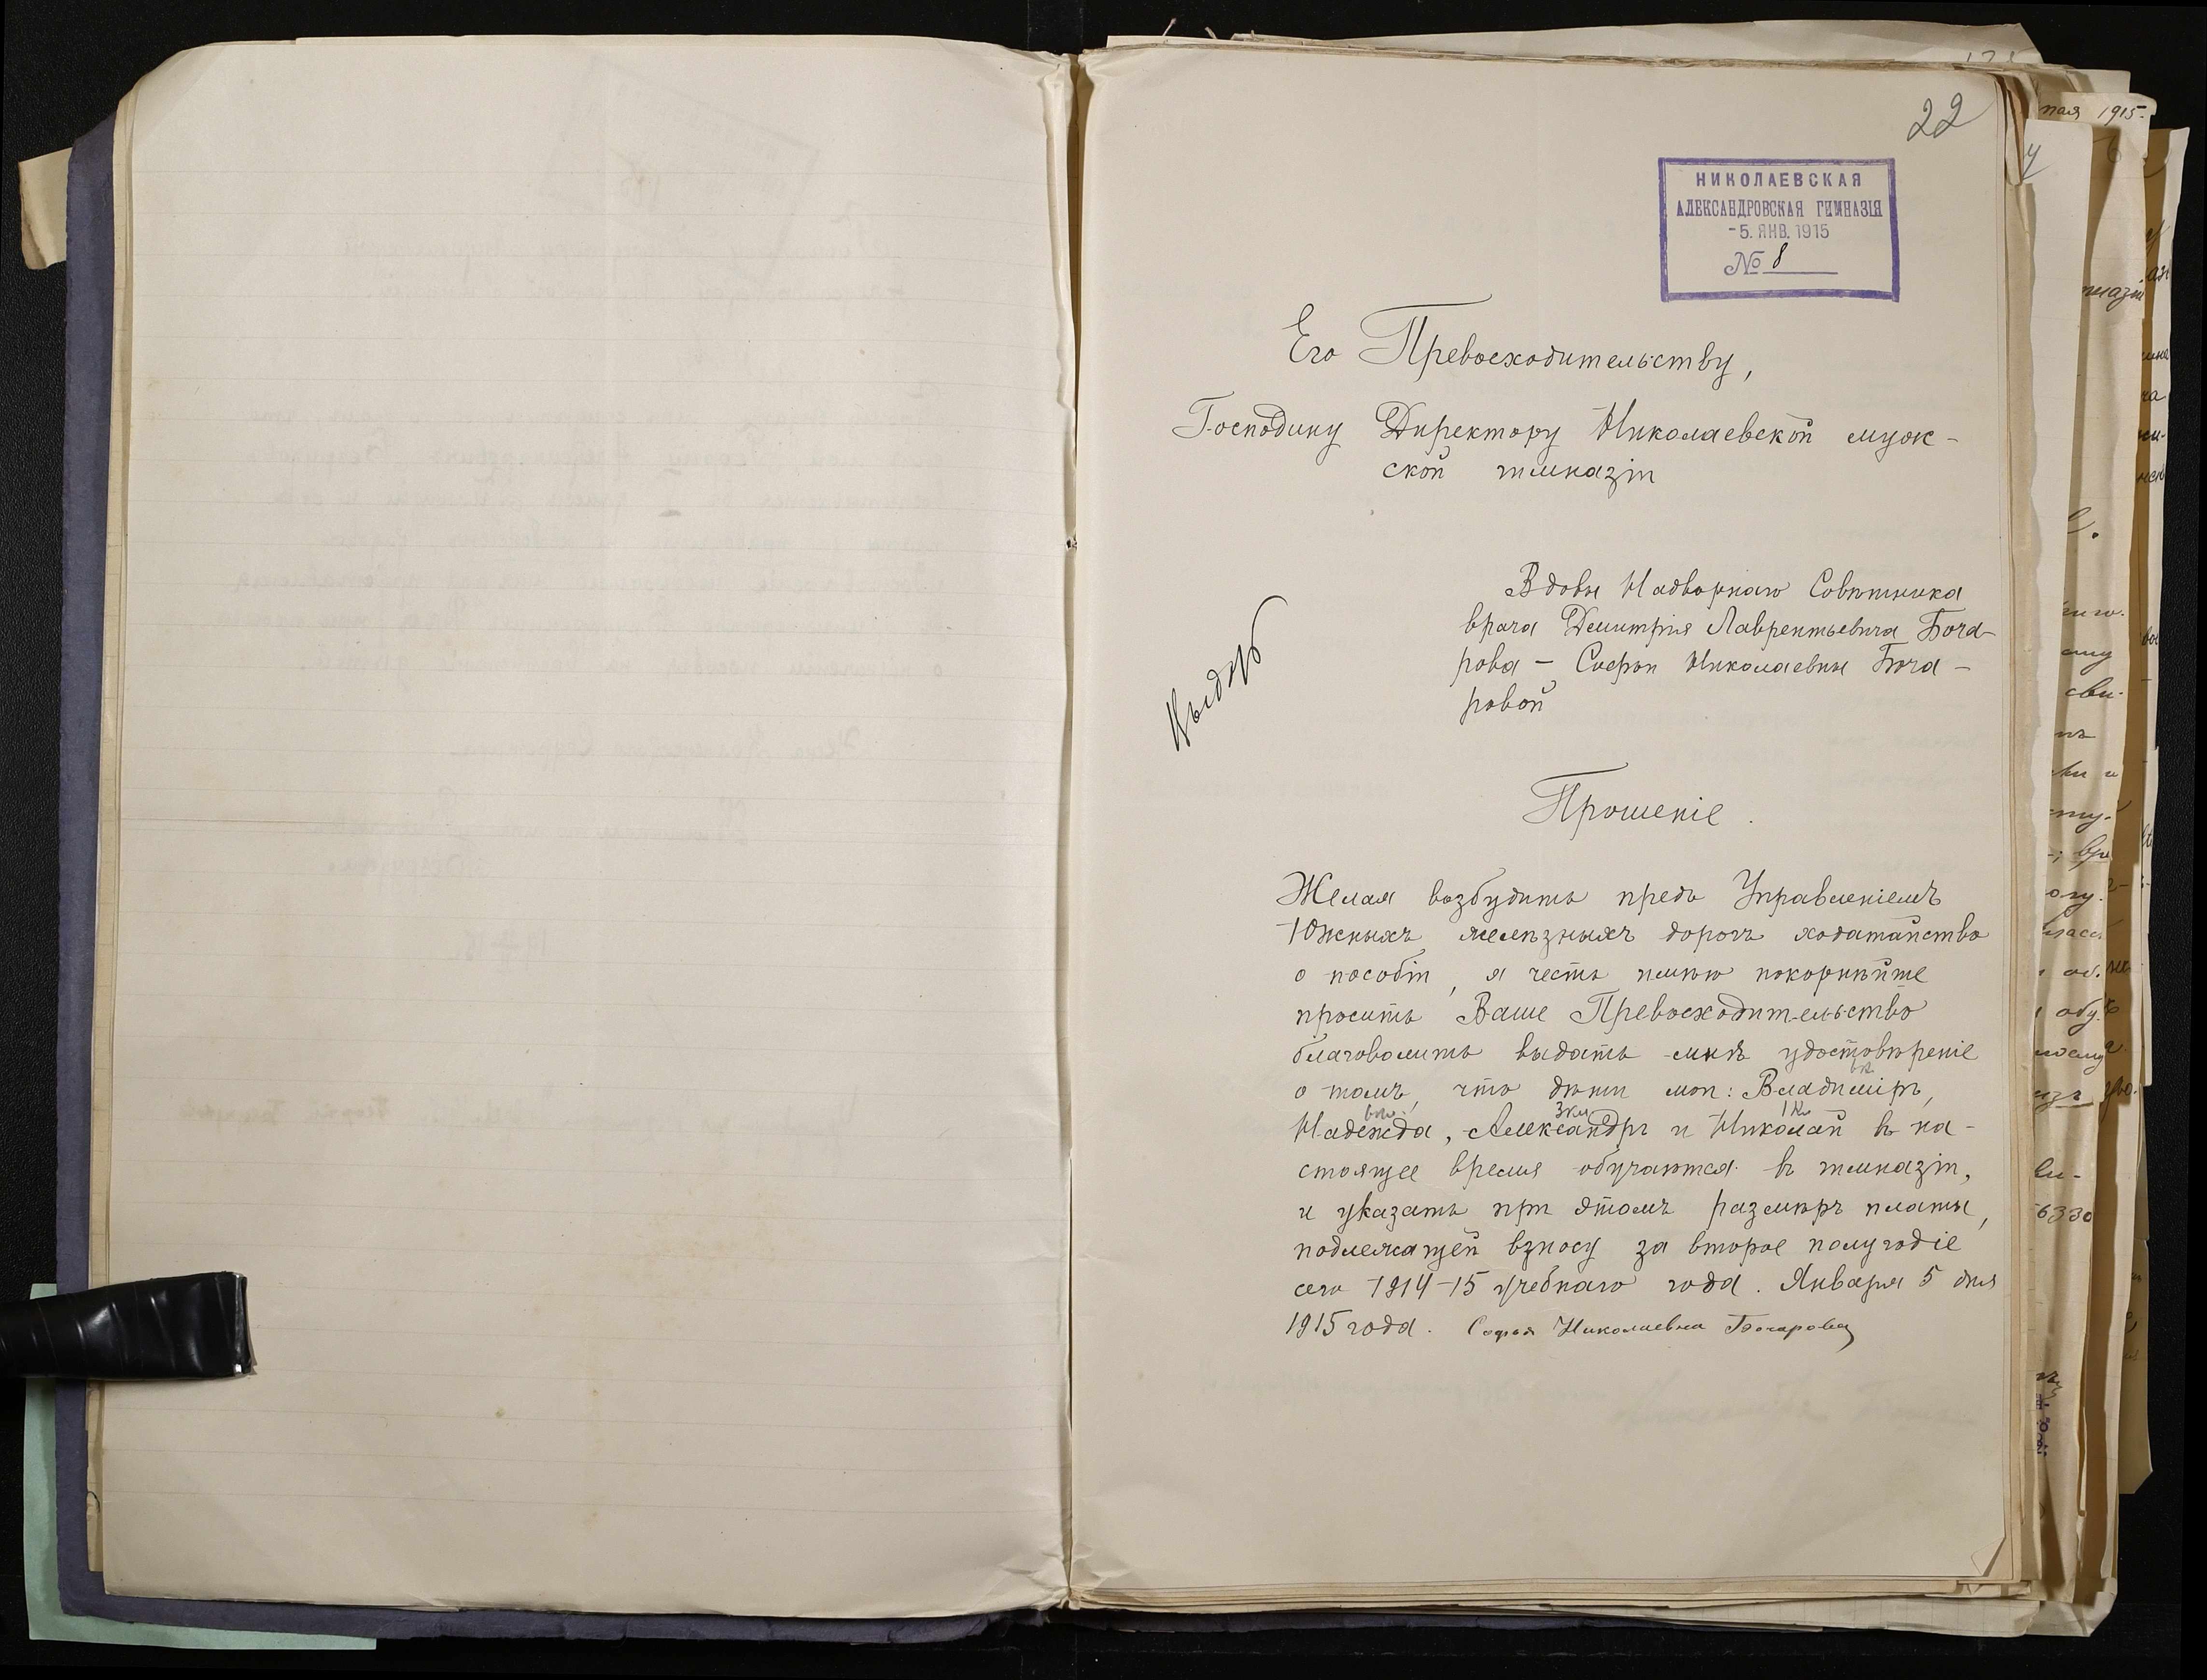 22
НИКОЛАЕВСКАЯ
АЛЕКСАНДРОВСКАЯ ГИМНАЗІЯ
-5. ЯНВ. 1915
№ 8
Его Превосходительству,
Господину Директору Николаевской муж-
ской гимназіи
Вдовы Надворнаго Совѣтника
врача Димитрія Лаврентьевича Боча-
рова – Софіи Николаевны Боча-
ровой
Прошеніе.
Желая возбудить предъ Управленіемъ
Южныхъ желѣзныхъ дорогъ ходатайство
о пособіи, я честь имѣю покорнѣйше
просить Ваше Превосходительство
благоволить выдать мнѣ удостовѣреніе
о томъ, что дѣти мои: Владиміръ,
3кл 1кл
Надежда, Александръ и Николай въ на-
стоящее время обучаются въ гимназіи,
и указать при этомъ размѣръ платы,
подлежащей взносу за второе полугодіе
сего 1914-15 учебнаго года. Января 5 дня
1915 года. Софія Николаевна Бочарова
мая 1915.
6330